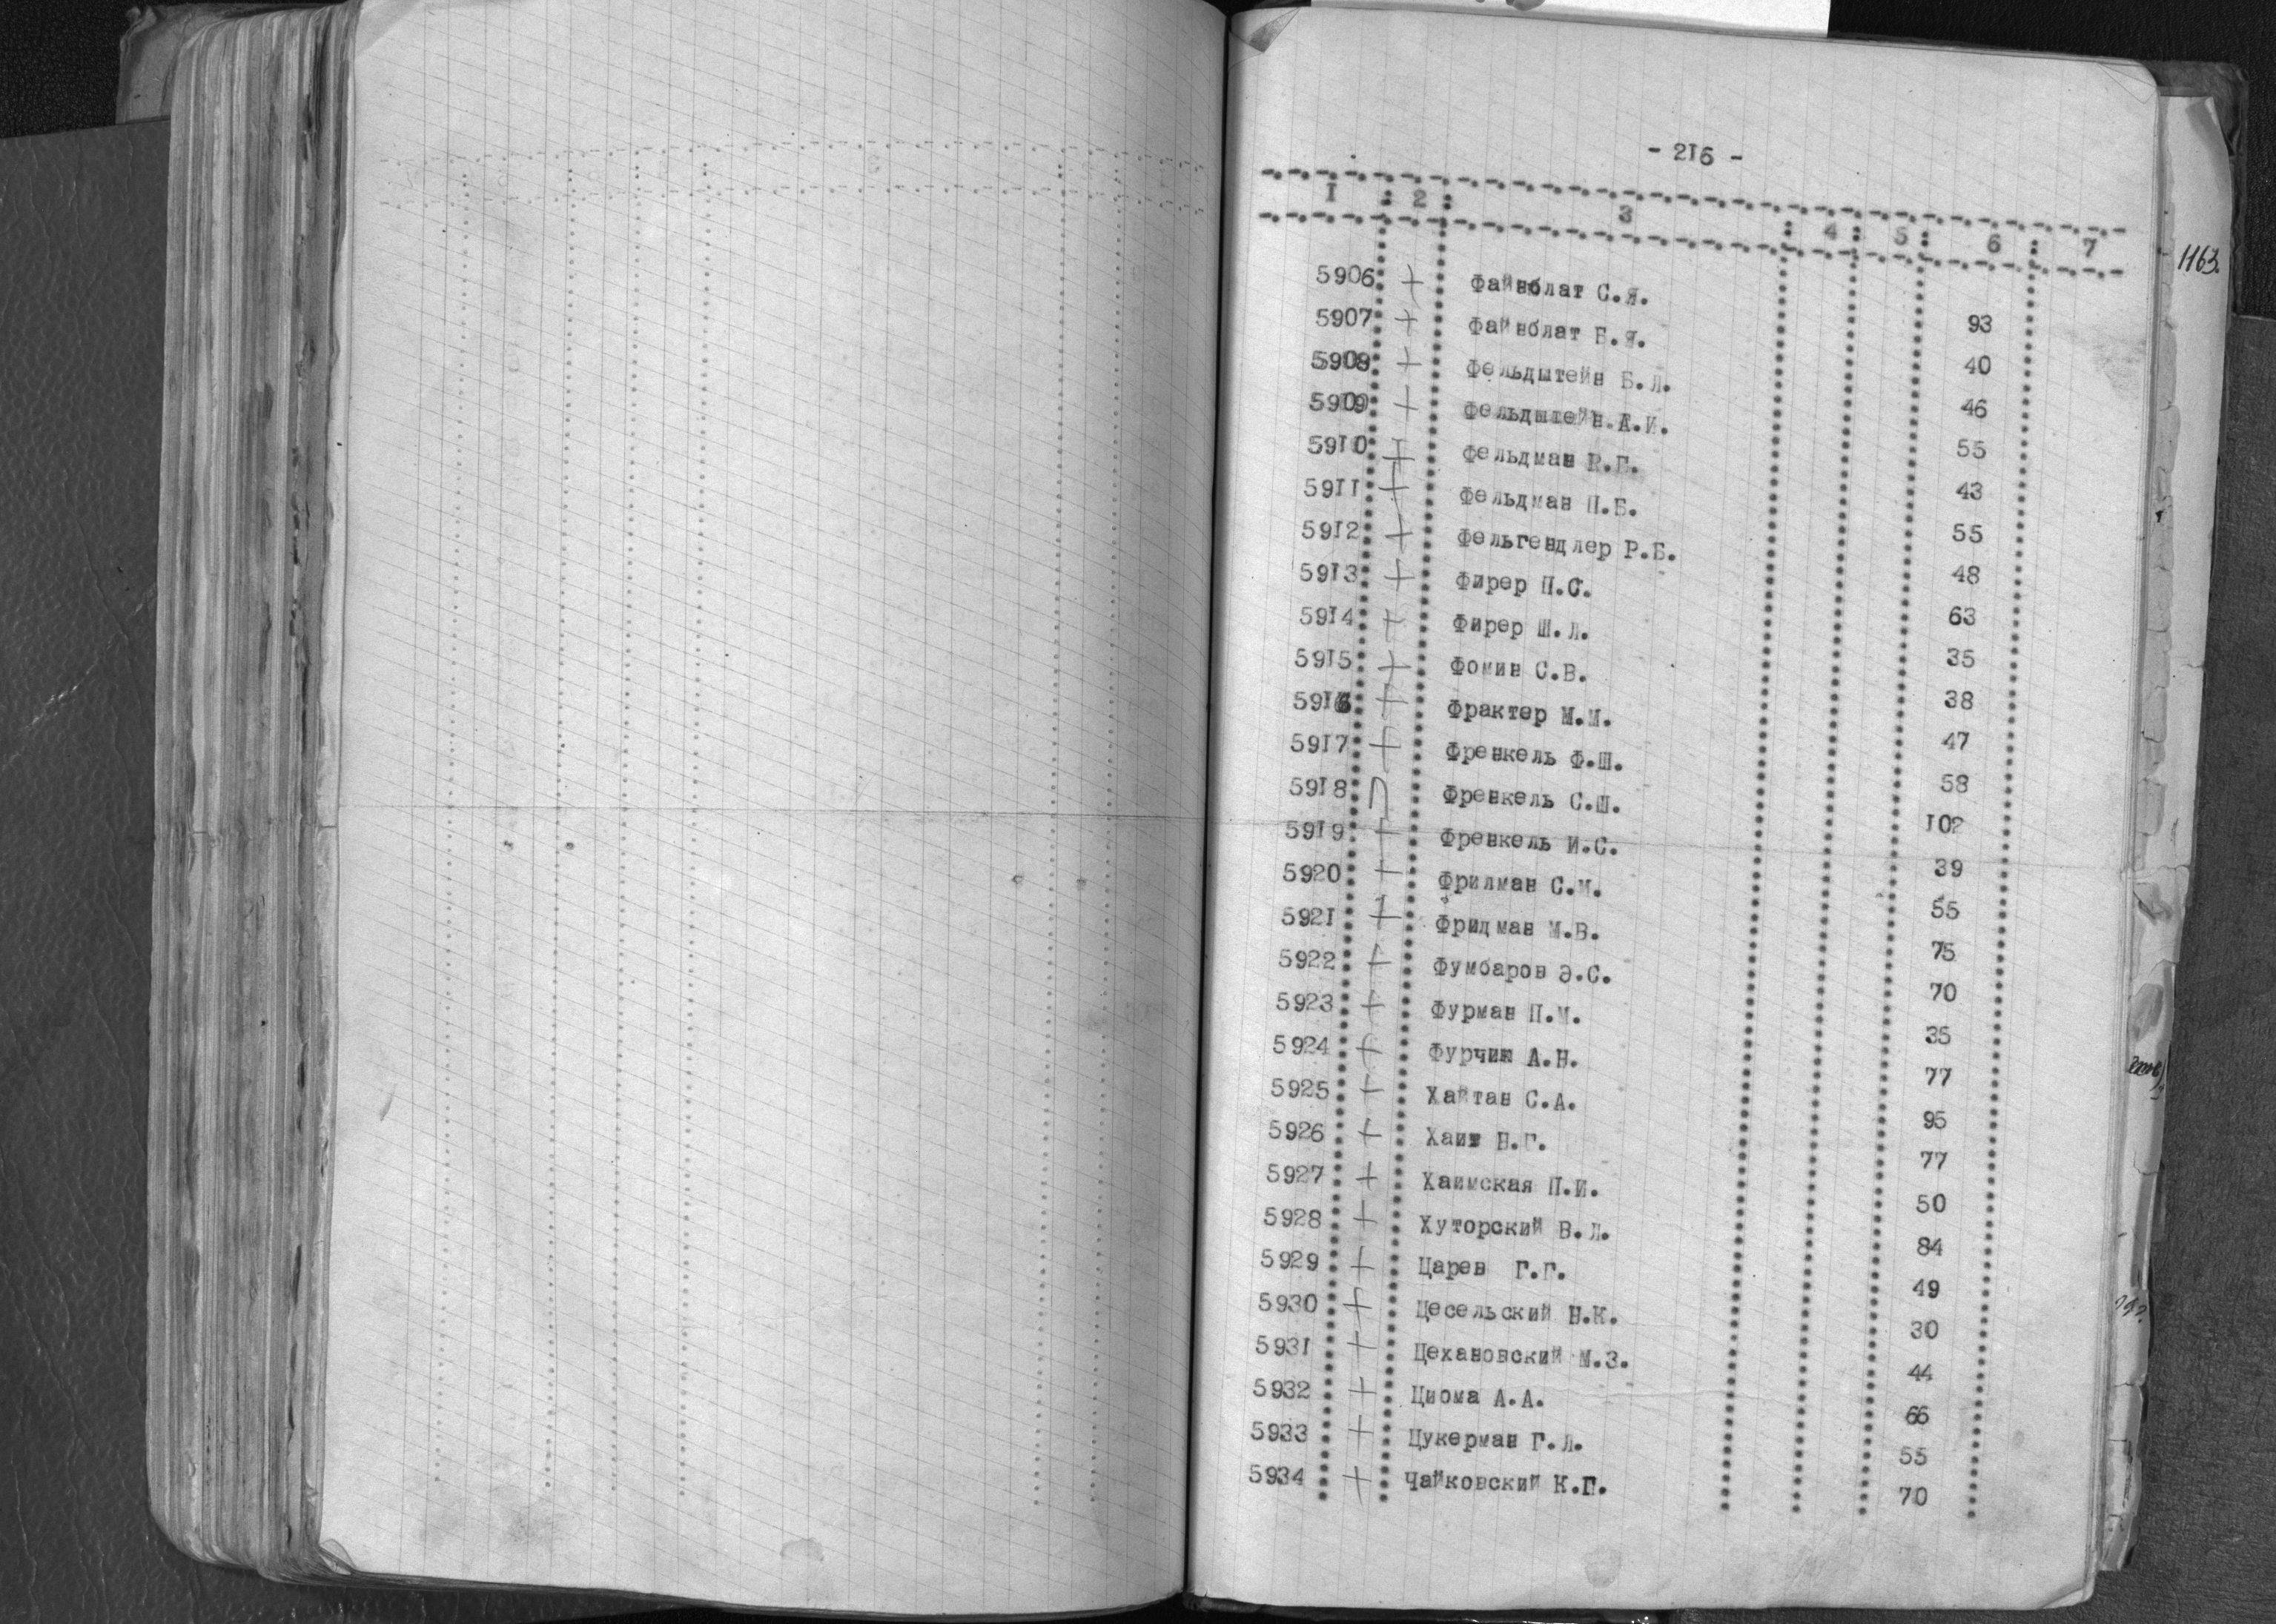 - 2I6 -
I : 2 : 3 : 4 : 5 : 6 : 7
1163.
5906 + Файнблат С.Я. 93
5907 + Файнблат Б.Я. 40
5908 + Фельдштейн Б.Л. 46
5909 + Фельдштейн А.И. 55
59I0 + Фельдман Р.Г. 43
59II + Фельдман П.Б. 55
59I2 + Фельгендлер Р.Б. 48
59I3 + Фирер П.С. 63
59I4 + Фирер Ш.Л. 35
59I5 + Фомин С.В. 38
59I6 + Фрактер М.М. 47
59I7 + Френкель Ф.Ш. 58
59I8 П Френкель С.Ш. I02
59I9 + Френкель И.С. 39
5920 + Фрилман С.М. 55
592I + Фридман М.В. 75
5922 + Фумбаров Э.С. 70
5923 + Фурман П.М. 35
5924 + Фурчин А.Н. 77
5925 + Хайтан С.А. 95
5926 + Хаит Н.Г. 77
5927 + Хаимская П.И. 50
5928 + Хуторский В.Л. 84
5929 + Царев Г.Г. 49
5930 + Цесельский Н.К. 30
593I + Цехановский М.З. 44
5932 + Циома А.А. 66
5933 + Цукерман Г.Л. 55
5934 + Чайковский К.П. 70